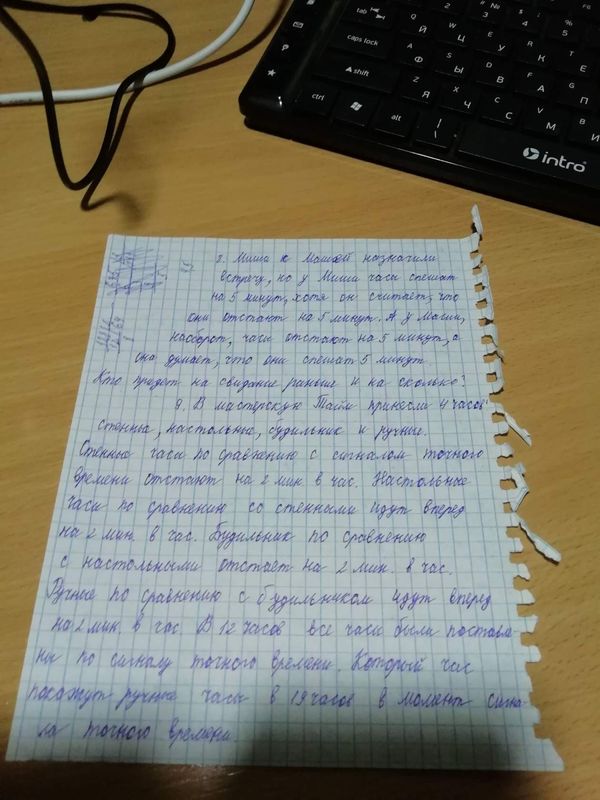 tab
caps lock
shift
ctrl
alt
Й Ц У К Е
Ф Ы В А П
Я Ч С М И
intro
8. Миша и Машей назначили
встречу, но у Миши часы спешат
на 5 минут, хотя он считает, что
они отстают на 5 минут. А у Маши,
наоборот, часы отстают на 5 минут, а
она думает, что они спешат 5 минут.
Кто придет на свидание раньше и на сколько?
9. В мастерскую Тайм принесли 4 часов
стенные, настольные, будильник и ручные.
Стенные часы по сравнению с сигналом точного
времени отстают на 2 мин в час. Настольные
часы по сравнению со стенными идут вперед
на 2 мин. в час. Будильник по сравнению
с настольными отстает на 2 мин. в час.
Ручные по сравнению с будильником идут вперед
на 2 мин. в час. В 12 часов все часы были поставле-
ны по сигналу точного времени. Который час
покажут ручные часы в 19 часов в момент сигна-
ла точного времени